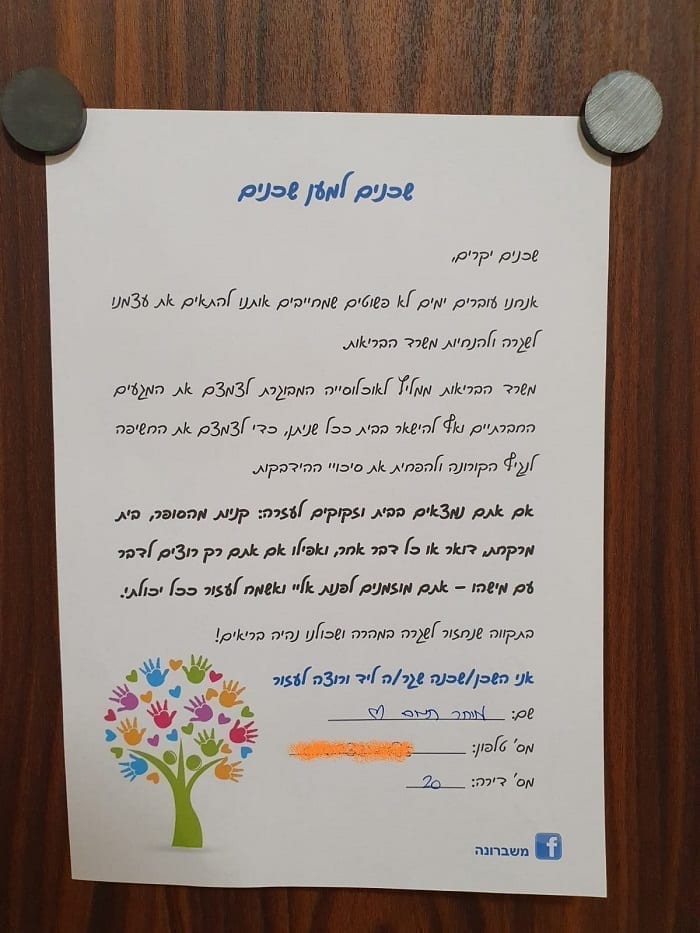 שכנים למען שכנים
שכנים יקרים,
אנחנו עוברים ימים לא פשוטים שמחייבים אותנו להתאים את עצמנו
לשגרה ולהנחיות משרד הבריאות.
משרד הבריאות ממליץ לאוכלוסייה המבוגרת לצמצם את המגעים
החברתיים ואף להישאר בבית ככל שניתן, כדי לצמצם את החשיפה
לנגיף הקורונה ולהפחית את סיכויי ההידבקות.
אם אתם נמצאים בבית וזקוקים לעזרה: קניות מהסופר, בית
מרקחת, דואר או כל דבר אחר, ואפילו אם אתם רק רוצים לדבר
עם מישהו – אתם מוזמנים לפנות אליי ואשמח לעזור ככל יכולתי.
בתקווה שנחזור לשגרה במהרה ושכולנו נהיה בריאים!
אני השכן/שכנה שגר/ה ליד ורוצה לעזור
שם: מיתר
מס' טלפון:
מס' דירה: 20
f משברונה